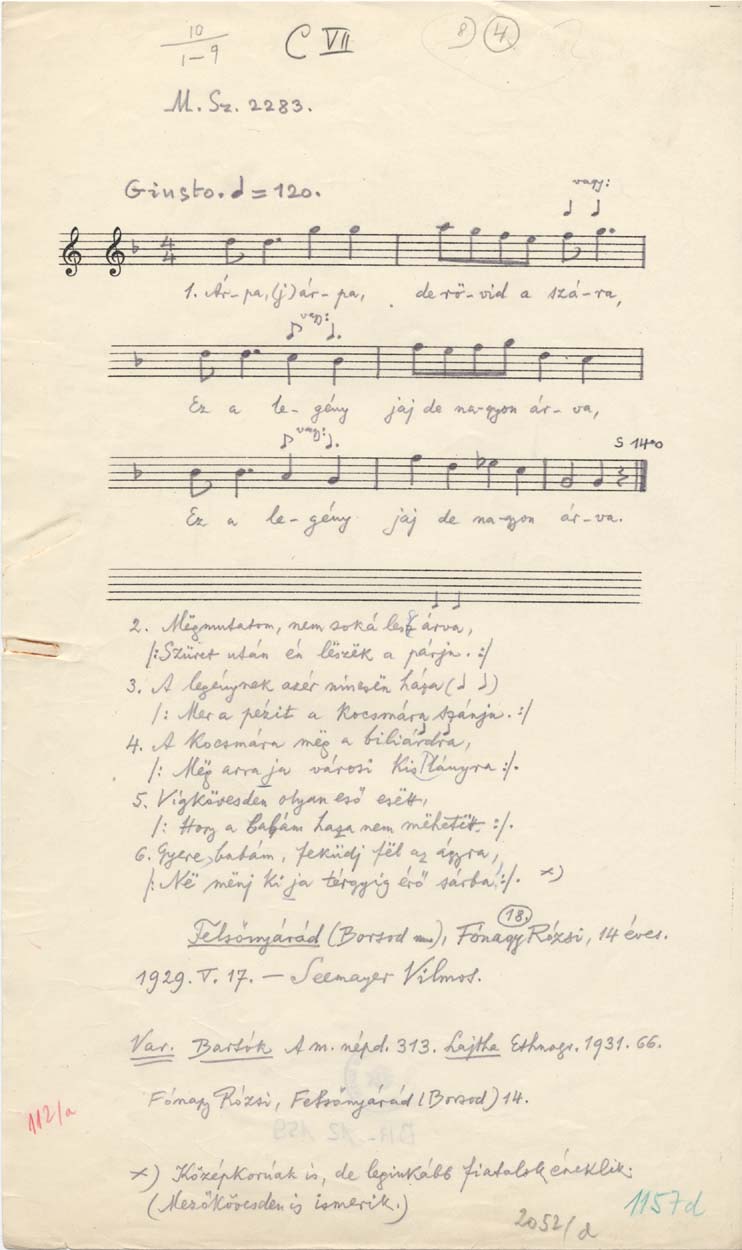 10
1-9
C VII
8) 4
M. Sz. 2283.
Giusto. ♩ = 120.
vagy:
1. Ár-pa, (j)ár-pa, de rö-vid a szá-ra,
vagy:
Ez a le-gény jaj de na-gyon ár-va,
vagy:
S 1400
Ez a le-gény jaj de na-gyon ár-va.
2. Mëgmutatom, nem soká lesz árva,
/: Szüret után én lëszëk a párja. :/
3. A legénynek azér nincsën háza (♩ ♩)
/: Mer a pézit a kocsmára szánja. :/
4. A kocsmára mëg a biliárdra,
/: Mëg arra ja városi kislányra :/.
5. Vígkövesden olyan eső esëtt,
/: Hogy a babám haza nem mëhetëtt :/.
6. Gyere babám, feküdj fël az ágyra,
/: Në mënj ki ja térgyig érő sárba! :/. x)
18.
Felsőnyárád (Borsod m.), Fónagy Rózsi, 14 éves.
1929. V. 17. — Seemayer Vilmos.
Var. Bartók A m. népd. 313. Lajtha Ethnogr. 1931. 66.
Fónagy Rózsi, Felsőnyárád (Borsod) 14.
112/a
x) Középkorúak is, de leginkább fiatalok éneklik.
(Mezőkövesden is ismerik.)
2052/d
1157d